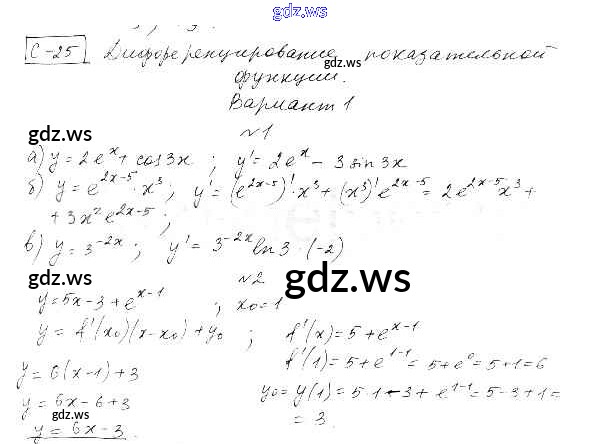 gdz.ws
С-25 Дифференцирование показательной
функции.
Вариант 1
№1
gdz.ws gdz.ws
а) y = 2e^x + cos3x ; y' = 2e^x - 3sin3x
б) y = e^{2x-5} · x^3 ; y' = (e^{2x-5})' · x^3 + (x^3)' e^{2x-5} = 2e^{2x-5}x^3 +
+ 3x^2 e^{2x-5} ;
в) y = 3^{-2x} ; y' = 3^{-2x} ln3 · (-2)
№2
gdz.ws gdz.ws
y = 5x - 3 + e^{x-1} ; x0 = 1
y = f'(x0)(x - x0) + y0 ; f'(x) = 5 + e^{x-1}
f'(1) = 5 + e^{1-1} = 5 + e^0 = 5 + 1 = 6
y = 6(x - 1) + 3
y0 = y(1) = 5·1 - 3 + e^{1-1} = 5 - 3 + 1 =
y = 6x - 6 + 3
= 3.
gdz.ws gdz.ws
y = 6x - 3